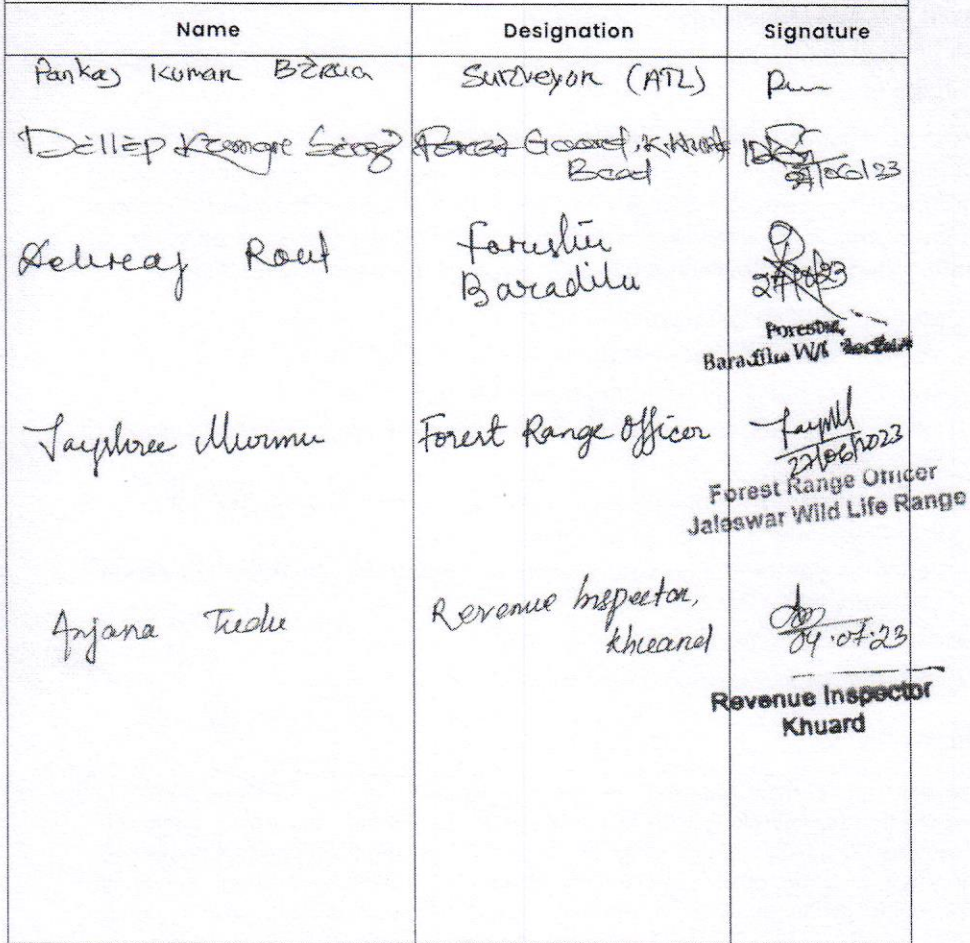 Name Designation Signature
Pankaj Kumar Birua Surveyor (ATL)
Dillip Singh Forest Guard, K.
Beat 27/06/23
Debraj Rout Forester
Baradiha 23
Forester,
Baradiha W/L Section
Jayshree Murmu Forest Range Officer
27/06/2023
Forest Range Officer
Jaleswar Wild Life Range
Anjana Tudu Revenue Inspector,
Khuard 04.07.23
Revenue Inspector
Khuard